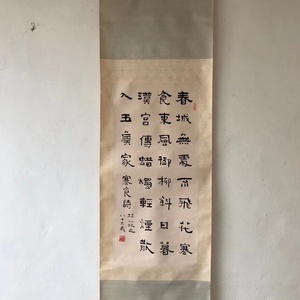 春城無處不飛花寒
食東風御柳斜日暮
漢宮傳蜡燭輕煙散
入五侯家 寒食詩